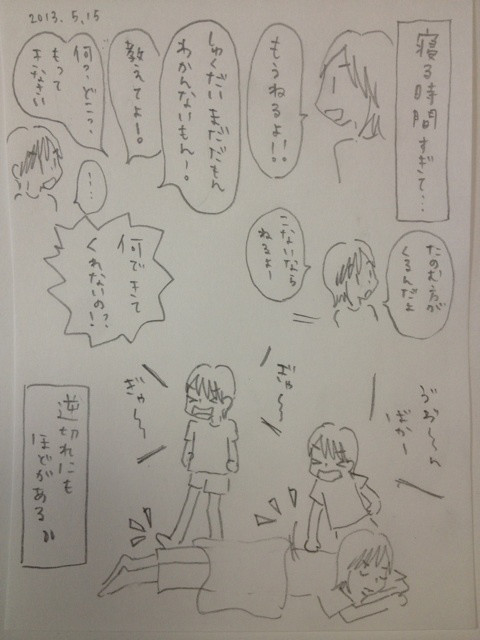 2013.5.15
寝る時間すぎて…
もうねるよ!!
しゅくだいまだだもん
わかんないもん!。
教えてよー!。
何?、どこっ、
もって
きなさい
…
たのむ方が
くるんだよ
こないなら
ねるよー
何できて
くれないのっ?、!
うお〜ん
ばかー
ぎゃ〜〜
ぎゃ〜〜
逆切れにも
ほどがある